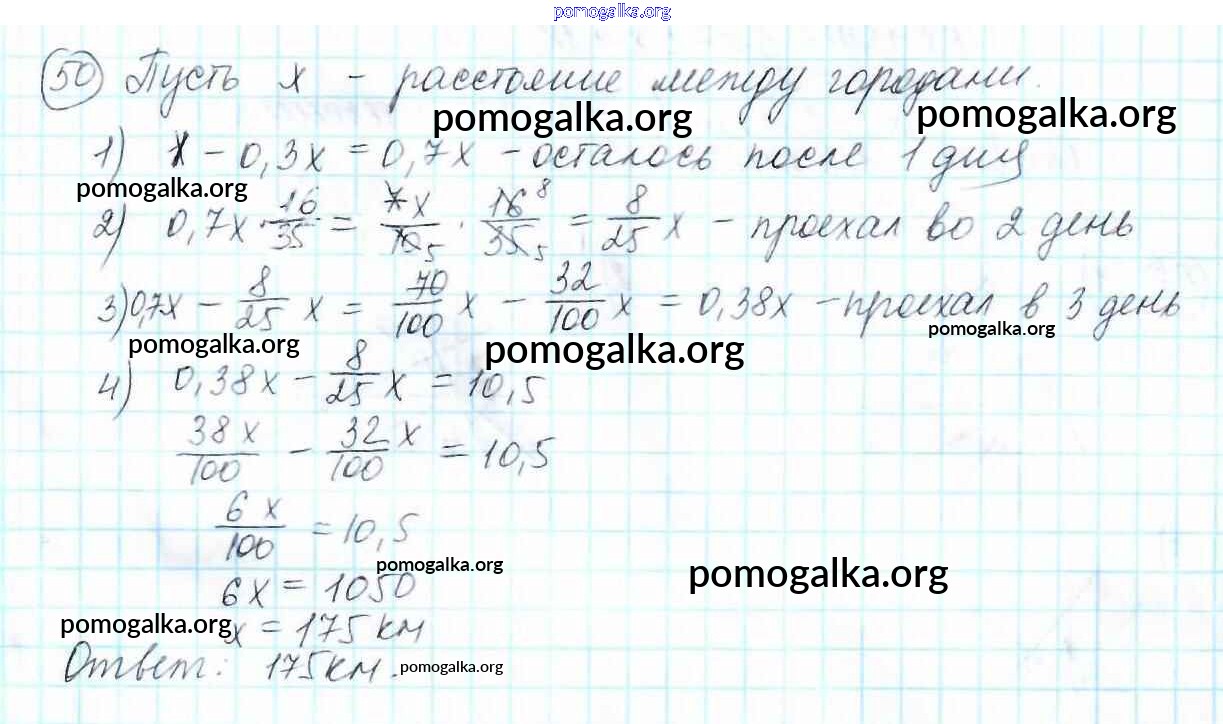 pomogalka.org
50 Пусть x - расстояние между городами.
pomogalka.org pomogalka.org
1) x - 0,3x = 0,7x - осталось после 1 дня
pomogalka.org
2) 0,7x · 16/35 = 7x/10 5 · 16 8/35 5 = 8/25 x - проехал во 2 день
3) 0,7x - 8/25 x = 70/100 x - 32/100 x = 0,38x - проехал в 3 день
pomogalka.org pomogalka.org pomogalka.org
4) 0,38x - 8/25 x = 10,5
38x/100 - 32/100 x = 10,5
6x/100 = 10,5
pomogalka.org pomogalka.org
6x = 1050
pomogalka.org x = 175 км
Ответ: 175 км. pomogalka.org